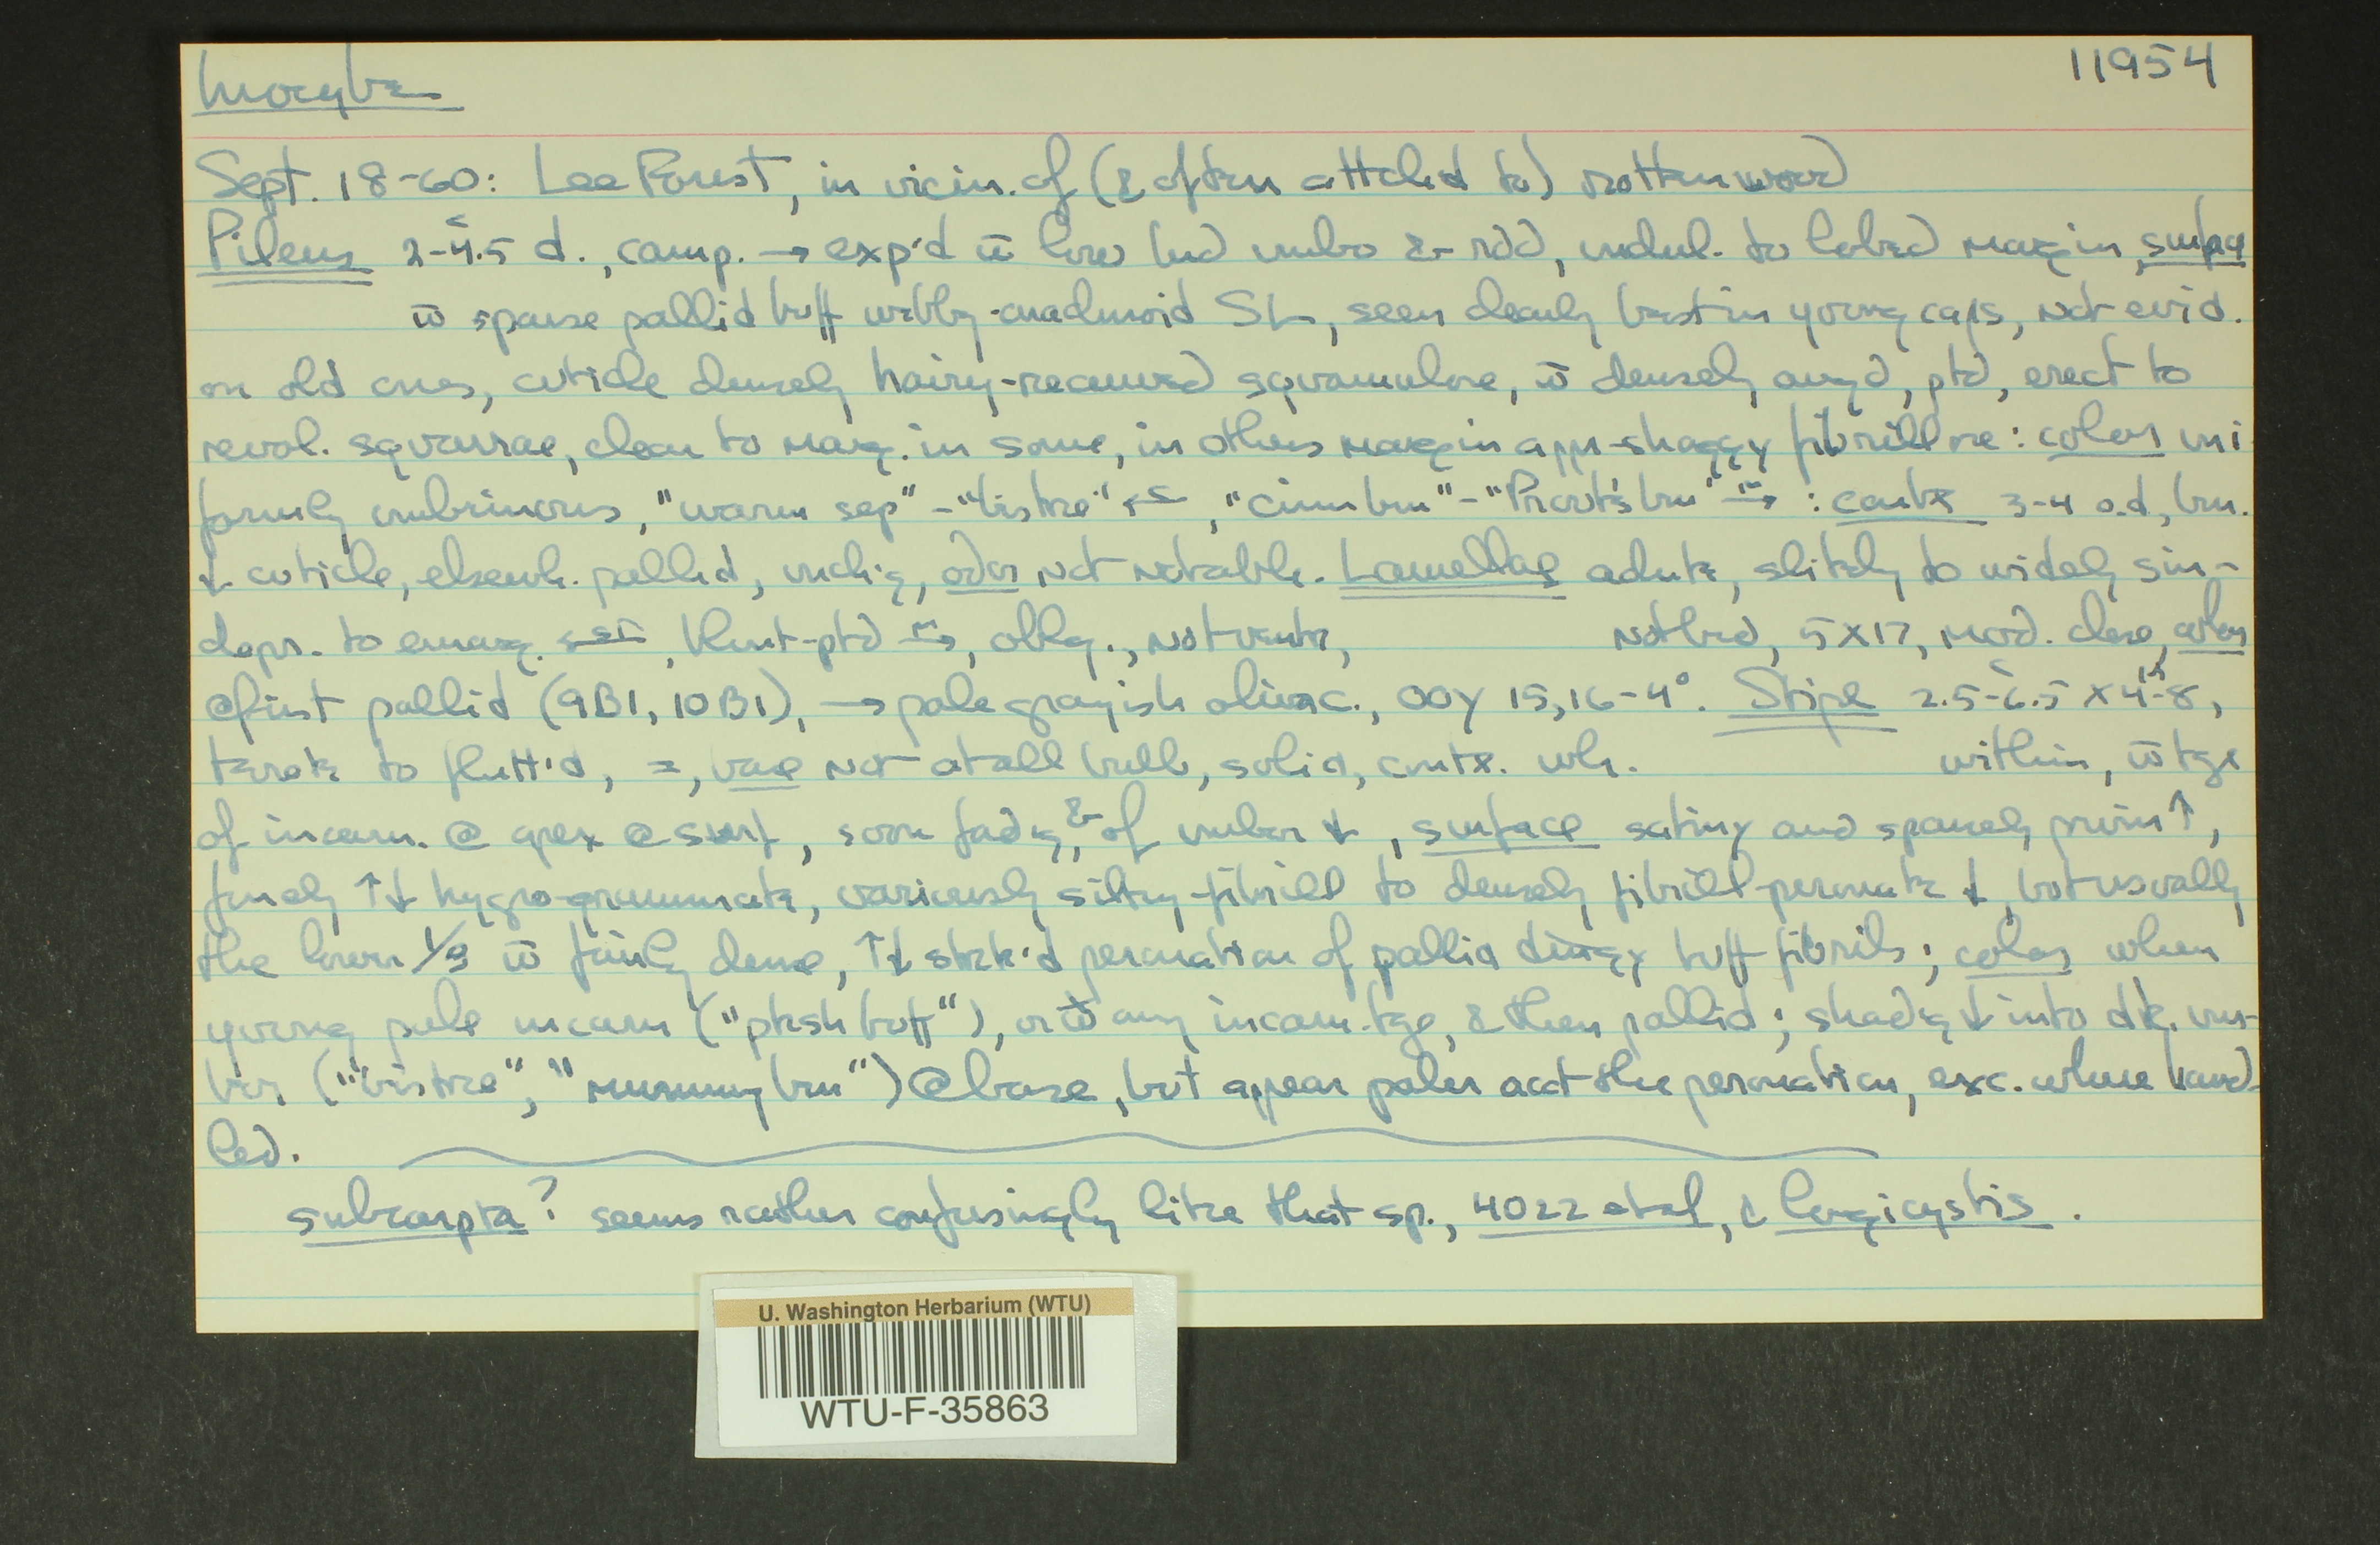 Inocybe 11954
Sept. 18-60: Lee Forest, in vicin. of (& often attch'd to) rotten wood
Pileus 2-4.5 d., camp. → exp'd w̄ low brd umbo & rdd, undul. to lobed margin, surface
w̄ sparse pallid buff webbly-arachnoid SL, seen clearly best in young caps, not evid.
on old ones, cuticle densely hairy-recurved squamulose, w̄ densely arrg'd, ptd, erect to
revol. squarrae, clear to marg. in some, in others margin appr-shaggy fibrillose: color uni
formly umbrinous, "warm sep" - "bistre" , "cinn brn" - "Prout's brn" : contx 3-4 o.d, brn.
↓ cuticle, elsewh. pallid, unch'g, odor not notable. Lamellae adnate, slitely to widely sin-
depr. to emarg. , blunt-ptd , oblq., not ventr, not brd, 5 x 17, mod. close, color
@ first pallid (9B1, 10B1), → pale grayish olivac., OOY 15,16-4°. Stipe 2.5-6.5 x 4-8,
terete to flatt'd, =, base not at all bulb, solid, contx. wh. within, w̄ tge
of incarn. @ apex @ surf, soon fad'g, & of umber ↓, surface satiny and sparsely pruin ↑,
finely ↑↓ hygro-grammate, variously silky-fibrill to densely fibrill-peronate ↓, but usually
the lower 1/3 w̄ fairly dense, ↑↓ strk'd peronation of pallid dingy buff fibrils; color when
young pale incarn ("pksh buff"), or w̄o any incarn. tge, & then pallid; shad'g ↓ into dk. um-
ber ("bistre", "mummy brn") @ base, but appear paler acct the peronation, exc. where hand-
led.
subcarpta? seems rather confusingly like that sp., 4022 et al, & longicystis.
U. Washington Herbarium (WTU)
WTU-F-35863